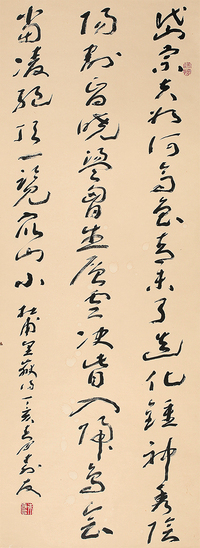 岱宗夫如何齐鲁青未了造化钟神秀阴
阳割昏晓荡胸生层云决眥入归鸟会
当凌绝顶一览众山小
杜甫望嶽诗丁亥